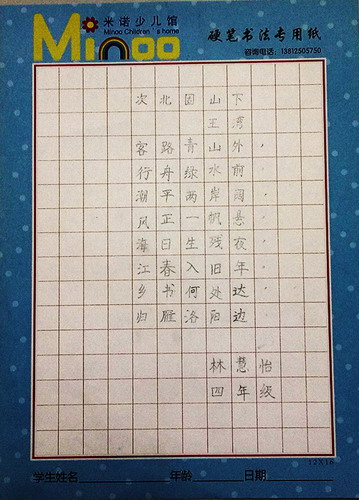 Minoo
米诺少儿馆
Minoo Children's home
硬笔书法专用纸
咨询电话：13812505750
次北固山下
王湾
客路青山外，
行舟绿水前。
潮平两岸阔，
风正一帆悬。
海日生残夜，
江春入旧年。
乡书何处达，
归雁洛阳边
林慧怡
四年级
12X16
学生姓名 年龄 日期